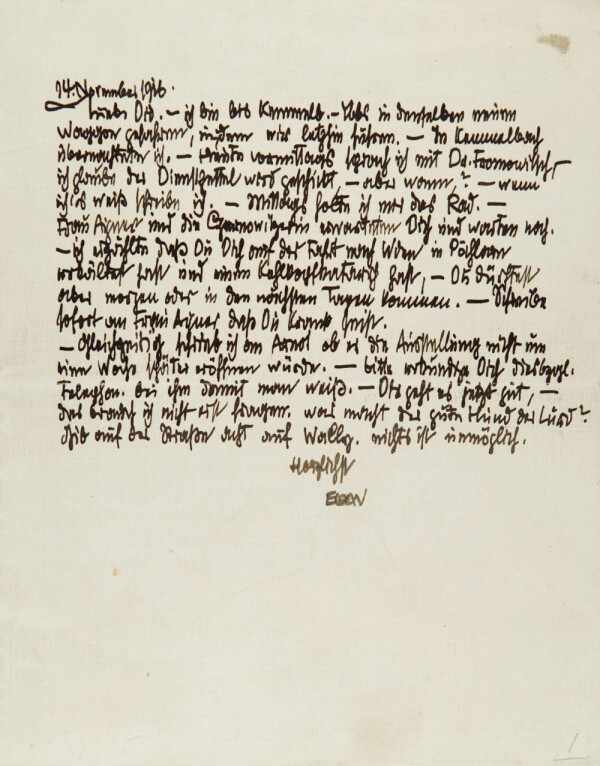 14. November 1916.
Liebe Did. – ich bin bis Kemmelb.-Ybbs in demselben neuen
Waggon gefahren, in dem wir letzthin fuhren. – In Kemmelbach
übernachtete ich. – Heute vormittags sprach ich mit Dr.
ich glaube der Dienstzettel wird geschickt, – aber wann,? – wenn
ich's weiß schreibe ich. – Mittags holte ich mir das Rad. –
Frau Agnes und die erwarteten Dich und warten noch.
– ich erzählte daß Du Dich auf der Fahrt nach Wien in Pöchlarn
verkühlt hast und einen Kehlkopfkatarrh hast, – Du dürftest
aber morgen oder in den nächsten Tagen kommen. – Schreibe
sofort an Frau Agnes, daß Du krank seist.
– Gleichzeitig schrieb ich an Arnot ob er die Ausstellung nicht um
eine Woche später eröffnen würde. – bitte erkundige Dich diesbezgl.
Telephon. bei ihm damit man weiß. – Dir geht es jetzt gut, –
das brauch ich nicht erst fragen. was macht der gute Hund der Lord?
Gib auf der Straße acht auf Wally. nichts ist unmöglich.
Herzlichst
EGON
1